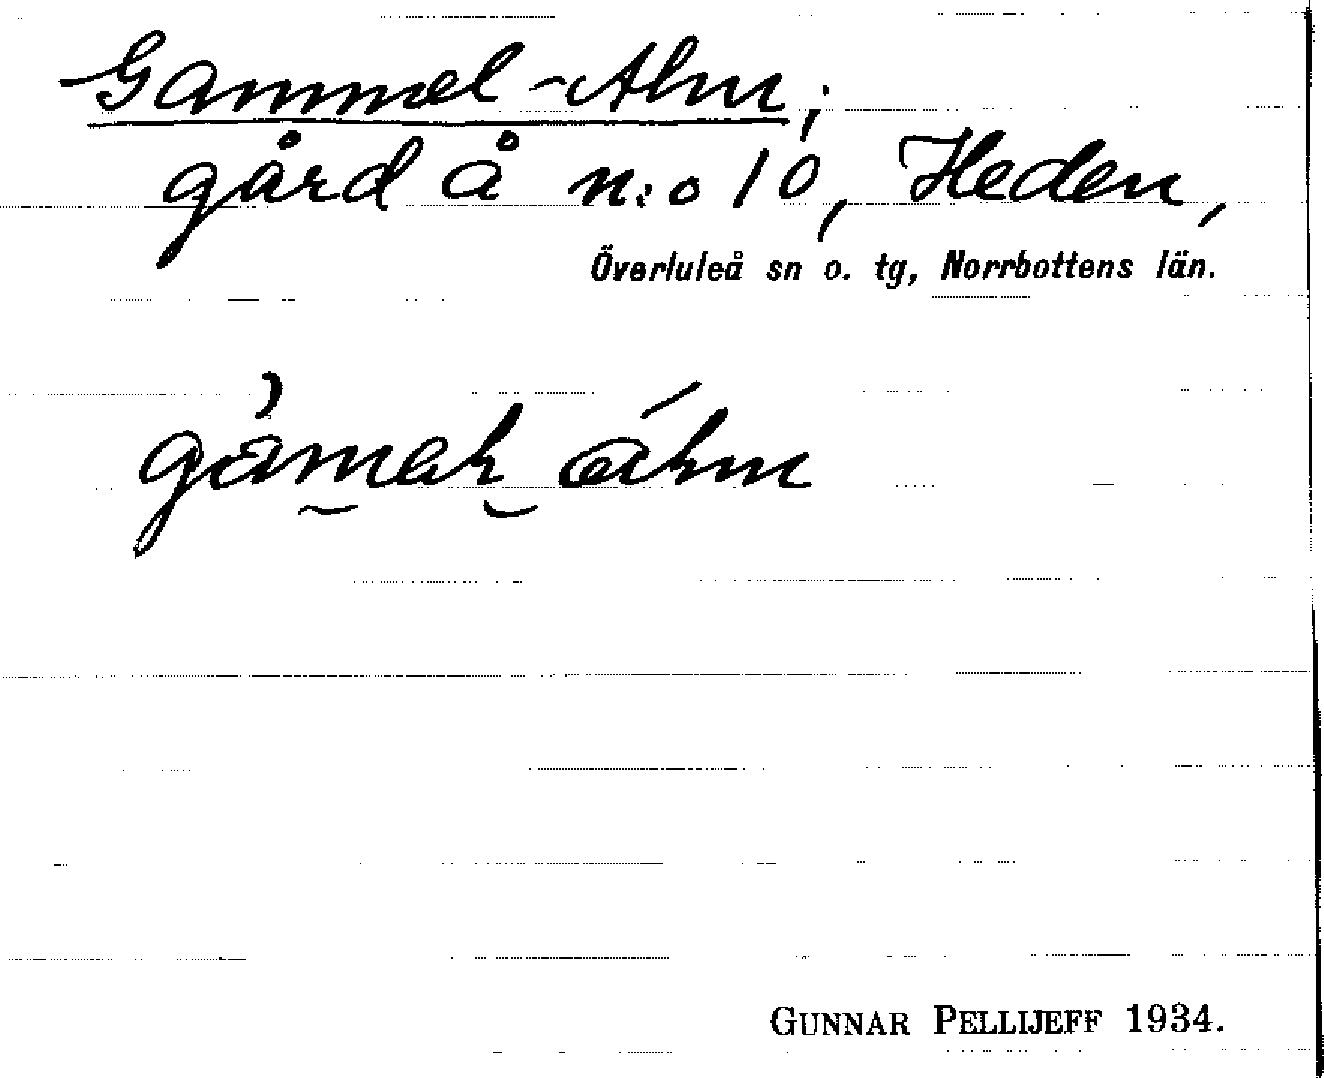 Gammel-Alm;
gård å n:o 10, Heden,
Överluleå sn o. tg, Norrbottens län.
GUNNAR PELLIJEFF 1934.